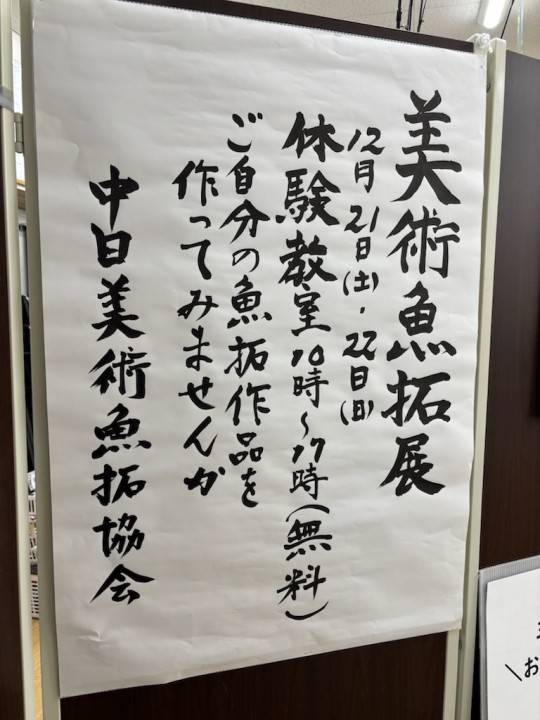 美術魚拓展
12月21日(土)・22日(日)
体験教室10時〜17時(無料)
ご自分の魚拓作品を
作ってみませんか
中日美術魚拓協会
\お